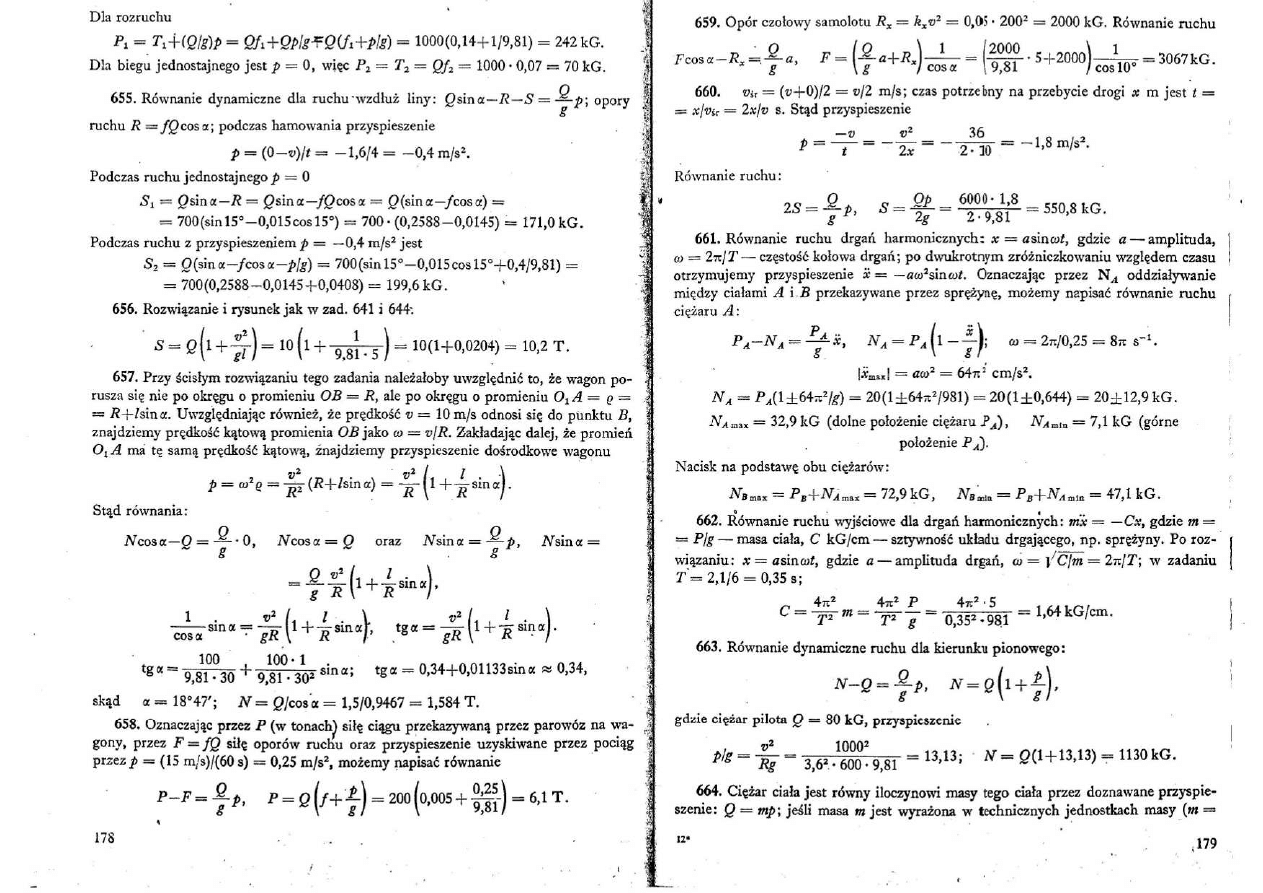 Dla rozruchu
P₁ = T₁+(Q/g)p = Qf₁+Qp/g∓Q(f₁+p/g) = 1000(0,14+1/9,81) = 242 kG.
Dla biegu jednostajnego jest p = 0, więc P₂ = T₂ = Qf₂ = 1000 · 0,07 = 70 kG.
655. Równanie dynamiczne dla ruchu wzdłuż liny: Qsin α—R—S = Q/g p; opory
ruchu R = fQcos α; podczas hamowania przyspieszenie
p = (0—v)/t = —1,6/4 = —0,4 m/s².
Podczas ruchu jednostajnego p = 0
S₁ = Qsin α—R = Qsin α—fQcos α = Q(sin α—fcos α) =
= 700(sin15°—0,015cos15°) = 700 · (0,2588—0,0145) = 171,0 kG.
Podczas ruchu z przyspieszeniem p = —0,4 m/s² jest
S₂ = Q(sin α—fcos α—p/g) = 700(sin15°—0,015cos15°+0,4/9,81) =
= 700(0,2588—0,0145+0,0408) = 199,6 kG.
656. Rozwiązanie i rysunek jak w zad. 641 i 644:
S = Q(1 + v²/gl) = 10(1 + 1/(9,81 · 5)) = 10(1+0,0204) = 10,2 T.
657. Przy ścisłym rozwiązaniu tego zadania należałoby uwzględnić to, że wagon po-
rusza się nie po okręgu o promieniu OB = R, ale po okręgu o promieniu O₁A = ϱ =
= R+lsin α. Uwzględniając również, że prędkość v = 10 m/s odnosi się do punktu B,
znajdziemy prędkość kątową promienia OB jako ω = v/R. Zakładając dalej, że promień
O₁A ma tę samą prędkość kątową, znajdziemy przyspieszenie dośrodkowe wagonu
p = ω²ϱ = v²/R² (R+lsin α) = v²/R (1 + l/R sin α).
Stąd równania:
Ncos α—Q = Q/g · 0, Ncos α = Q oraz Nsin α = Q/g p, Nsin α =
= Q/g v²/R (1 + l/R sin α),
1/cos α sin α = v²/gR (1 + l/R sin α), tg α = v²/gR (1 + l/R sin α).
tg α = 100/(9,81 · 30) + 100 · 1/(9,81 · 30²) sin α; tg α = 0,34+0,01133sin α ≈ 0,34,
skąd α = 18°47′; N = Q/cos α = 1,5/0,9467 = 1,584 T.
658. Oznaczając przez P (w tonach) siłę ciągu przekazywaną przez parowóz na wa-
gony, przez F = fQ siłę oporów ruchu oraz przyspieszenie uzyskiwane przez pociąg
przez p = (15 m/s)/(60 s) = 0,25 m/s², możemy napisać równanie
P—F = Q/g p, P = Q(f + p/g) = 200(0,005 + 0,25/9,81) = 6,1 T.
178
659. Opór czołowy samolotu Rₓ = kₓv² = 0,05 · 200² = 2000 kG. Równanie ruchu
Fcos α—Rₓ = Q/g a, F = (Q/g a+Rₓ) 1/cos α = (2000/9,81 · 5+2000) 1/cos10° = 3067kG.
660. vśr = (v+0)/2 = v/2 m/s; czas potrzebny na przebycie drogi x m jest t =
= x/vśr = 2x/v s. Stąd przyspieszenie
p = —v/t = — v²/2x = — 36/(2 · 10) = —1,8 m/s².
Równanie ruchu:
2S = Q/g p, S = Qp/2g = 6000 · 1,8/(2 · 9,81) = 550,8 kG.
661. Równanie ruchu drgań harmonicznych: x = asin ωt, gdzie a — amplituda,
ω = 2π/T — częstość kołowa drgań; po dwukrotnym zróżniczkowaniu względem czasu
otrzymujemy przyspieszenie ẍ = —aω²sin ωt. Oznaczając przez N_A oddziaływanie
między ciałami A i B przekazywane przez sprężynę, możemy napisać równanie ruchu
ciężaru A:
P_A—N_A = P_A/g ẍ, N_A = P_A(1 — ẍ/g); ω = 2π/0,25 = 8π s⁻¹.
|ẍmax| = aω² = 64π² cm/s².
N_A = P_A(1±64π²/g) = 20(1±64π²/981) = 20(1±0,644) = 20±12,9 kG.
N_A max = 32,9 kG (dolne położenie ciężaru P_A), N_A min = 7,1 kG (górne
położenie P_A).
Nacisk na podstawę obu ciężarów:
N_B max = P_B+N_A max = 72,9 kG, N_B min = P_B+N_A min = 47,1 kG.
662. Równanie ruchu wyjściowe dla drgań harmonicznych: mẍ = —Cx, gdzie m =
= P/g — masa ciała, C kG/cm — sztywność układu drgającego, np. sprężyny. Po roz-
wiązaniu: x = asin ωt, gdzie a — amplituda drgań, ω = √C/m = 2π/T; w zadaniu
T = 2,1/6 = 0,35 s;
C = 4π²/T² m = 4π²/T² P/g = 4π² · 5/(0,35² · 981) = 1,64 kG/cm.
663. Równanie dynamiczne ruchu dla kierunku pionowego:
N—Q = Q/g p, N = Q(1 + p/g),
gdzie ciężar pilota Q = 80 kG, przyspieszenie
p/g = v²/Rg = 1000²/(3,6² · 600 · 9,81) = 13,13; N = Q(1+13,13) = 1130 kG.
664. Ciężar ciała jest równy iloczynowi masy tego ciała przez doznawane przyspie-
szenie: Q = mp; jeśli masa m jest wyrażona w technicznych jednostkach masy (m =
12*
179